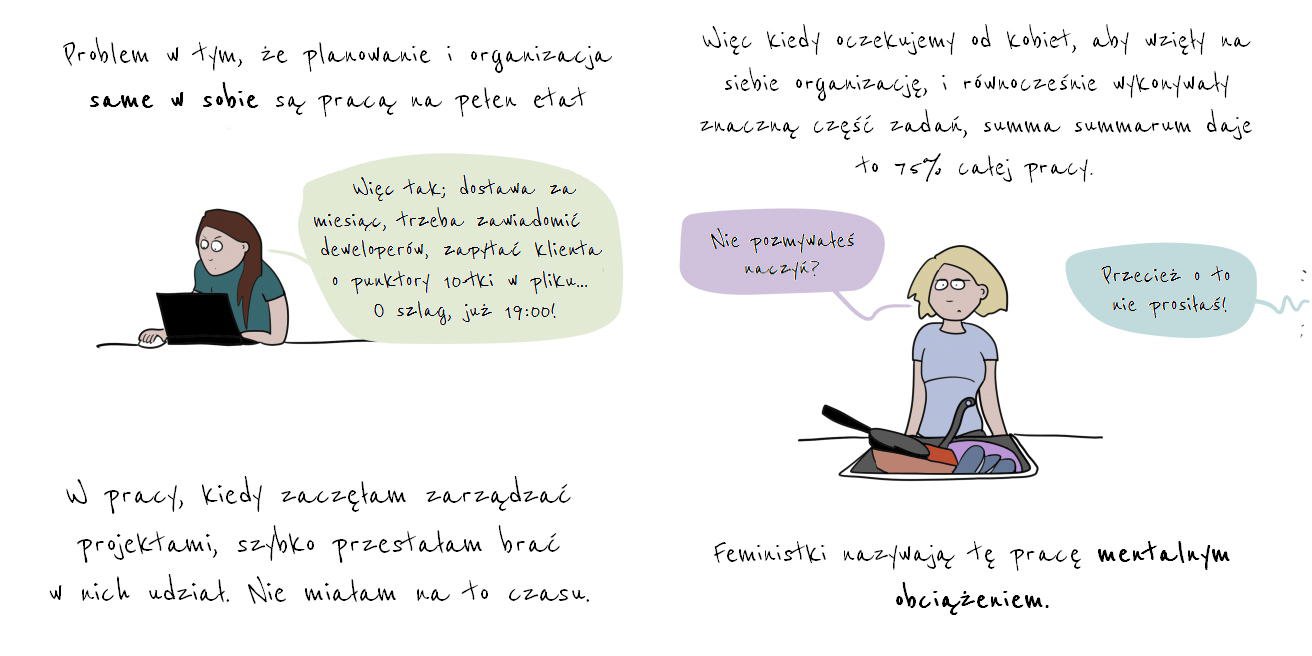 Problem w tym, że planowanie i organizacja
same w sobie są pracą na pełen etat
Więc tak; dostawa za
miesiąc, trzeba zawiadomić
deweloperów, zapytać klienta
o punktory 10-tki w pliku...
O szlag, już 19:00!
W pracy, kiedy zaczęłam zarządzać
projektami, szybko przestałam brać
w nich udział. Nie miałam na to czasu.
Więc kiedy oczekujemy od kobiet, aby wzięły na
siebie organizację, i równocześnie wykonywały
znaczną część zadań, summa summarum daje
to 75% całej pracy.
Nie pozmywałeś
naczyń?
Przecież o to
nie prosiłaś!
Feministki nazywają tę pracę mentalnym
obciążeniem.